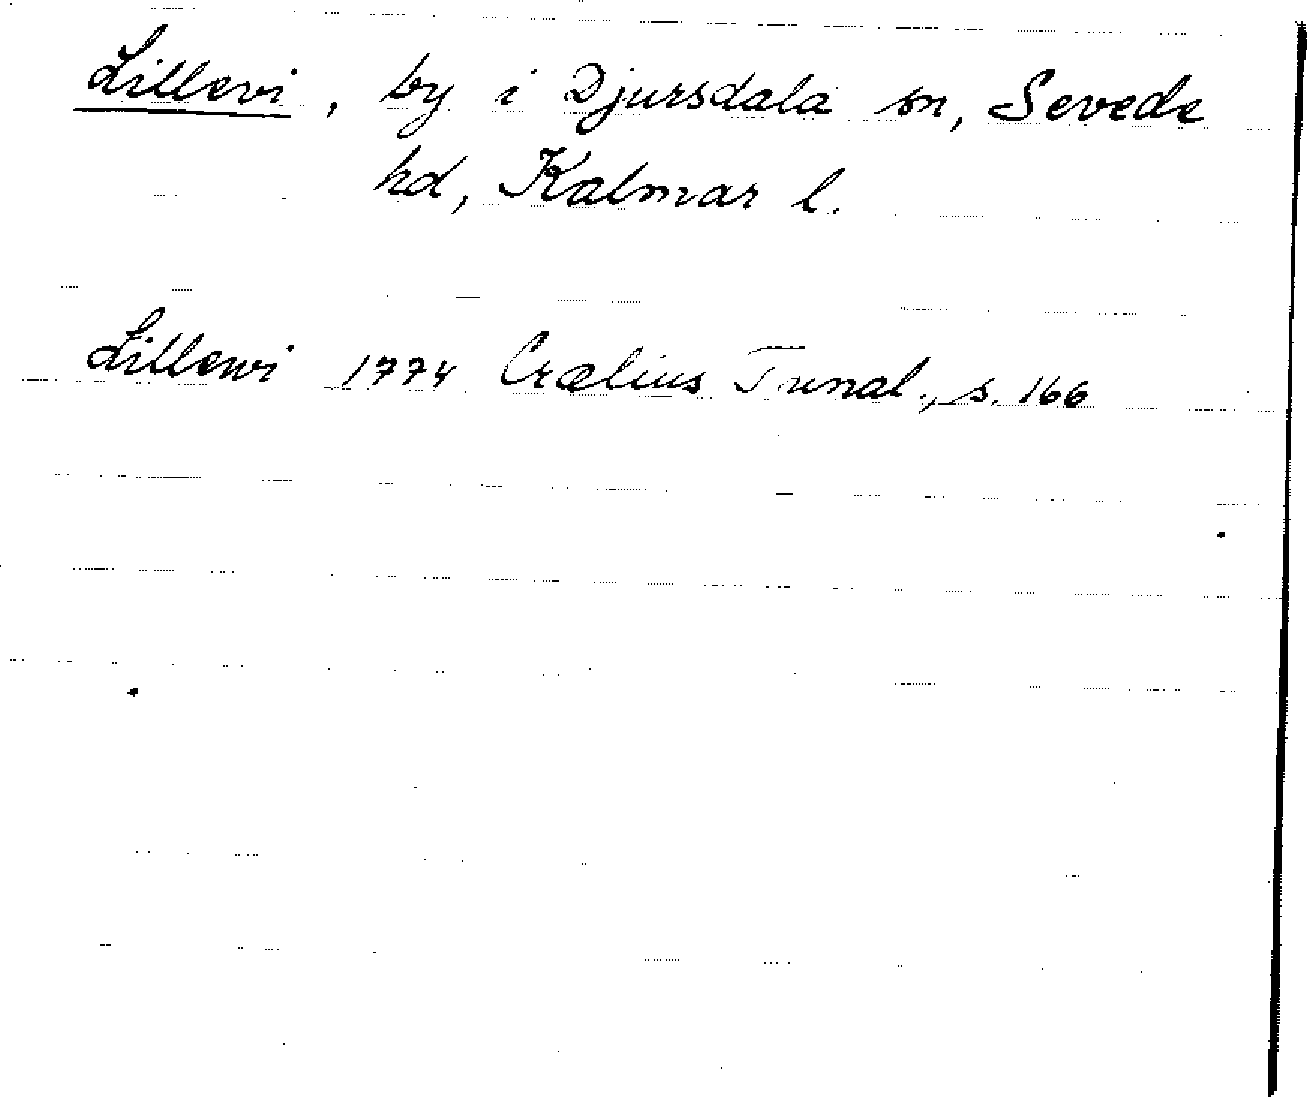 Lillevi, by i Djursdala sn, Sevede
hd, Kalmar l.
Lillewi 1774 Crælius Tunal., s. 166